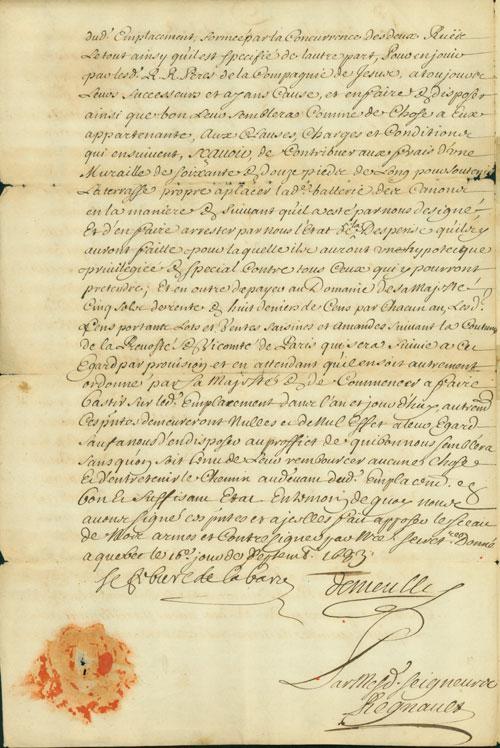 dud. Emplacement, formée par la Concurrence des deux Ruës
Le tout ainsy qu'il est specifié de l'autre part, Pour en jouir
par lesd. R. R. Peres de la Compagnie de Jesus, a toujours
Leurs Successeurs et ayans Cause, et en faire & disposer
ainsi que bon Leur semblera Comme de Chose a Eux
appartenante, Aux Clauses, Charges et Conditions
qui ensuivent, Scauoir, de Contribuer aux frais d'une
Muraille de soixante & douze pieds de Long pour soutenir
La terrasse propre a placer lad. batterie de Canons
en la maniere & suiuant qu'il a esté par nous designé
Et d'en faire arrester par nous l'État Despense qu'ils y
auront faitte pour la quelle ils auront vne hypotecque
priuilegiée & special Contre tous Ceux qui y pourront
pretendre; Et en outre de payer au Domaine de sa Majesté
Cinq Sols de rente & huit deniers de Cens par Chacun an, Lesd.
Cens portants Lots et Ventes Saisines et Amandes suiuant la Coutume
de la Preuosté & Vicomté de Paris qui sera suiuie a cet
Egard par prouision, et en attendant qu'il en soit autrement
ordonné par sa Majesté & de Commencer a faire
bastir sur led. Emplacement dans l'an et jour d'huy, autremt
Ces pntes demeureront Nulles & de Nul Effet a leur Egard
sauf a nous d'en disposer au proffict de qui bon nous semblera
sans qu'on soit tenu de Leur rembourcer aucunes Chose
Et d'entretenir le Chemin au deuant dud. Emplacemt. en
bon Et suffisant Estat En temoin de quoy nous
auons signé ces pntes et a jcelles fait apposer le sceau
de Nos armes et Contresigner par Nos Secret.res Donné
a quebec le 16e. jour de Septemb. 1683
Le febure de la barre demeulle
Par Mesd. Seigneurs
Regnault